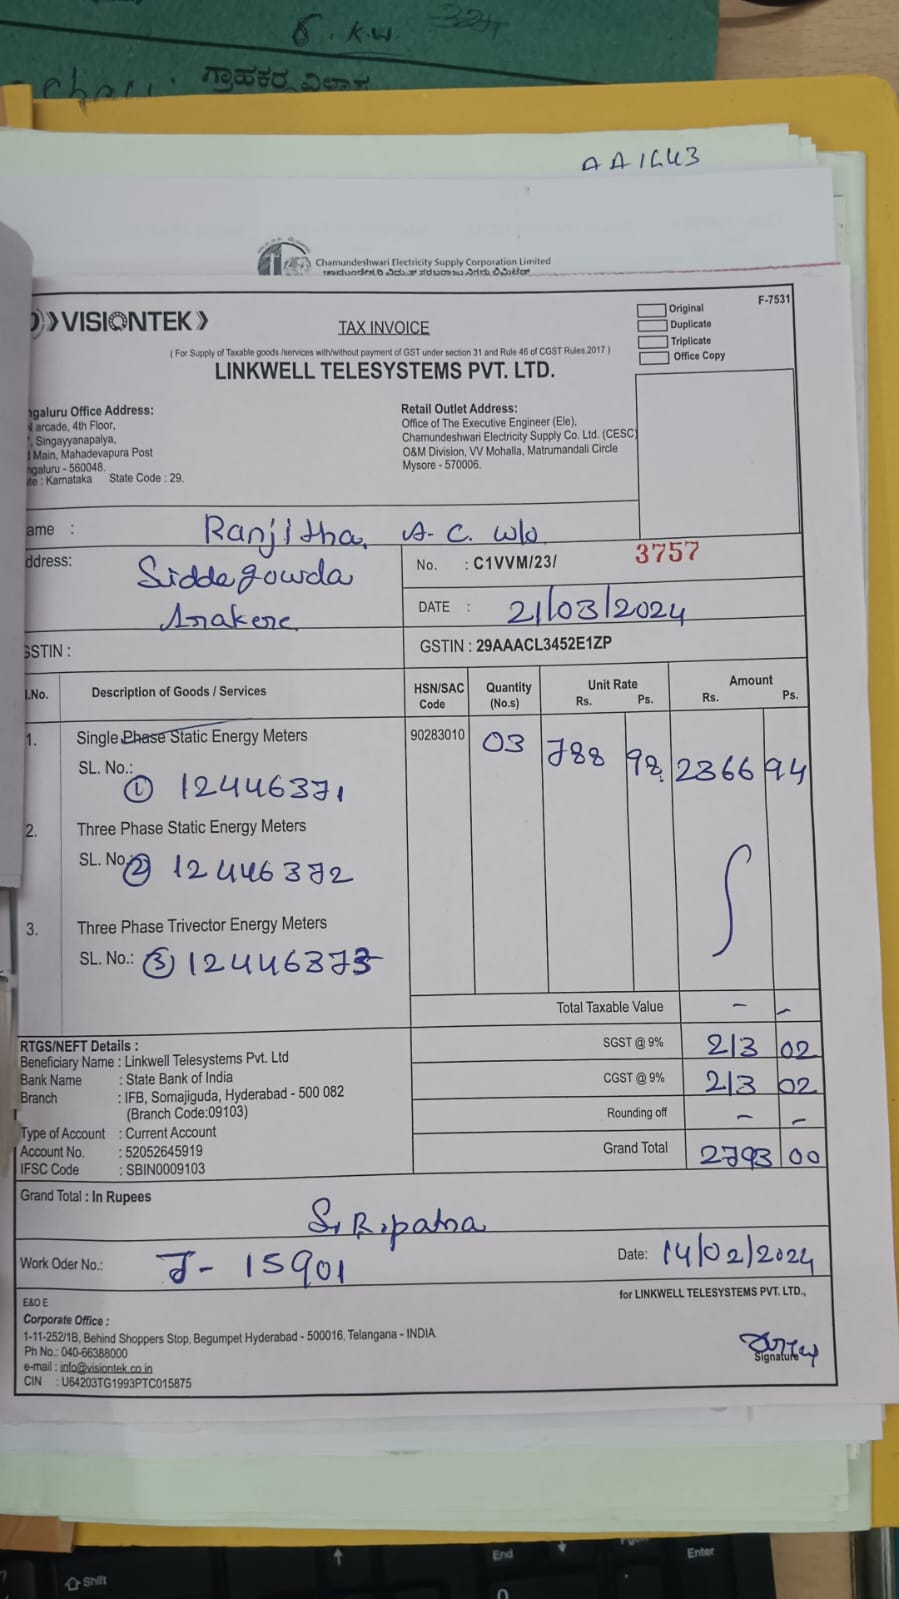 6. K.W.
ಗ್ರಾಹಕರ ವಿಳಾಸ
AA1643
Chamundeshwari Electricity Supply Corporation Limited
VISIONTEK
TAX INVOICE
F-7531
Original
Duplicate
Triplicate
Office Copy
( For Supply of Taxable goods /services with/without payment of GST under section 31 and Rule 46 of CGST Rules,2017 )
LINKWELL TELESYSTEMS PVT. LTD.
ngaluru Office Address:
arcade, 4th Floor,
Singayyanapalya,
Main, Mahadevapura Post
ngaluru - 560048.
te : Karnataka State Code : 29.
Retail Outlet Address:
Office of The Executive Engineer (Ele),
Chamundeshwari Electricity Supply Co. Ltd. (CESC)
O&M Division, VV Mohalla, Matrumandali Circle
Mysore - 570006.
ame : Ranjitha A. C. w/o
ddress: Siddegowda
Arakere
No. : C1VVM/23/ 3757
DATE : 21/03/2024
GSTIN :
GSTIN : 29AAACL3452E1ZP
.No. Description of Goods / Services HSN/SAC Code Quantity (No.s) Unit Rate Rs. Ps. Amount Rs. Ps.
1. Single Phase Static Energy Meters 90283010 03 788 98 2366 94
SL. No.: ① 12446371
2. Three Phase Static Energy Meters
SL. No ② 12446372
3. Three Phase Trivector Energy Meters
SL. No.: ③ 12446373
Total Taxable Value - -
SGST @ 9% 213 02
CGST @ 9% 213 02
Rounding off - -
Grand Total 2793 00
RTGS/NEFT Details :
Beneficiary Name : Linkwell Telesystems Pvt. Ltd
Bank Name : State Bank of India
Branch : IFB, Somajiguda, Hyderabad - 500 082
(Branch Code:09103)
Type of Account : Current Account
Account No. : 52052645919
IFSC Code : SBIN0009103
Grand Total : In Rupees
S.R.patna
Work Oder No.: J- 15901 Date: 14/02/2024
for LINKWELL TELESYSTEMS PVT. LTD.,
E&O E
Corporate Office :
1-11-252/1B, Behind Shoppers Stop, Begumpet Hyderabad - 500016, Telangana - INDIA
Ph No.: 040-66388000
e-mail : info@visiontek.co.in
CIN : U64203TG1993PTC015875
Signature
End
Enter
Shift